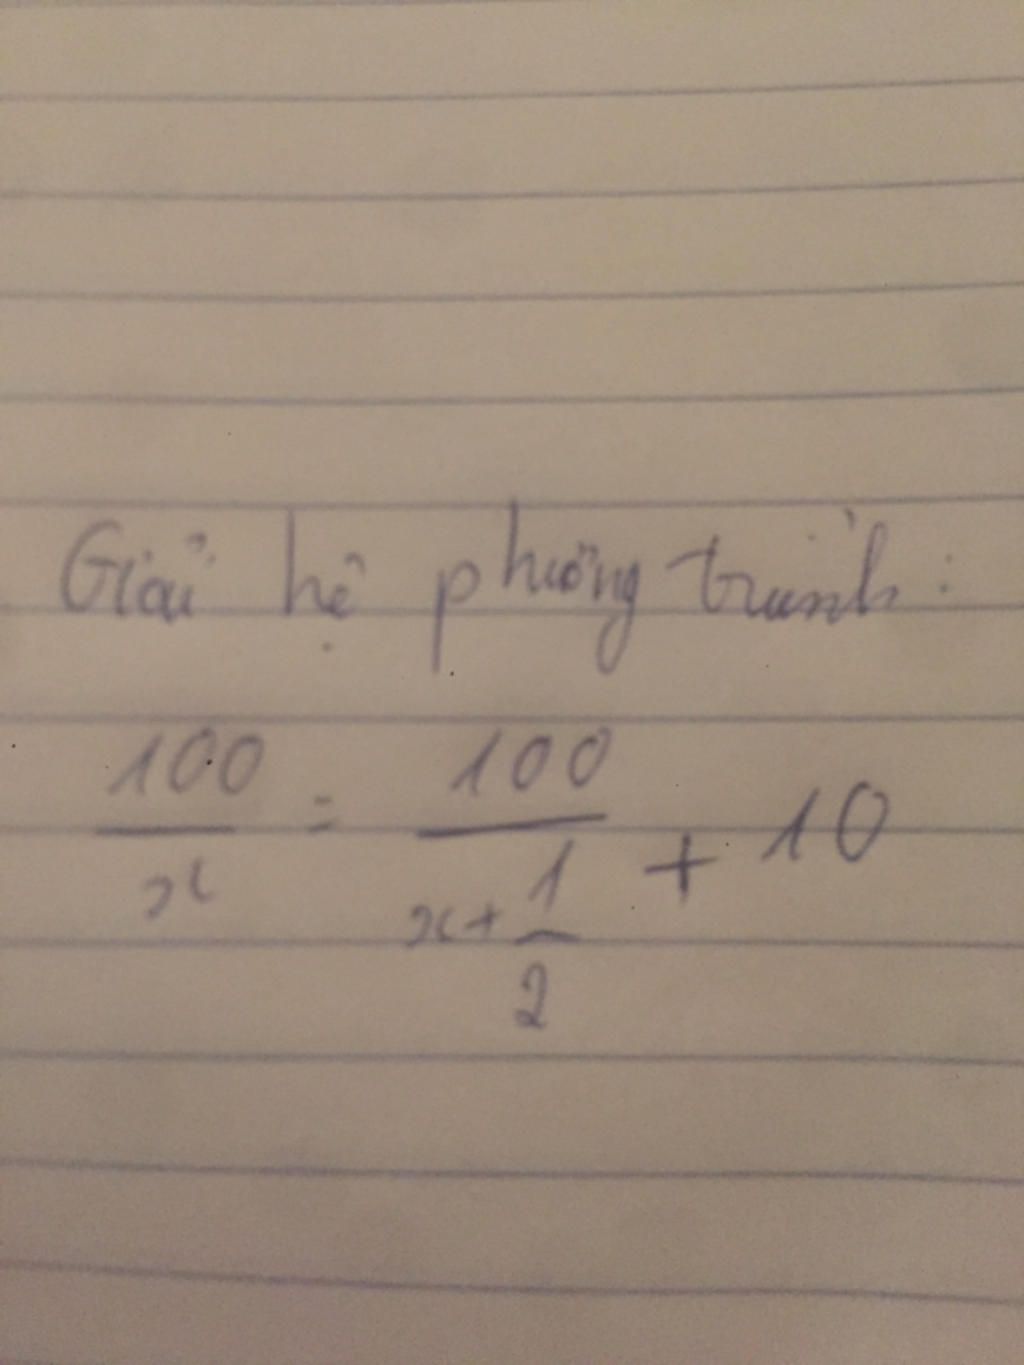 Giải hệ phương trình:
100/x = 100/(x + 1/2) + 10